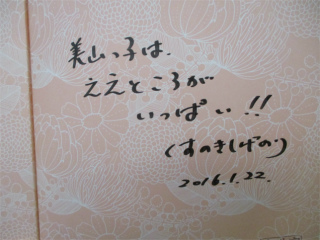 美山っ子は、
ええところが
いっぱい!!
(すのきしげの)
2016.1.22.